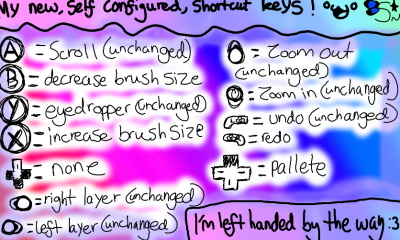 My new, Self Configured, Shortcut keys!
A = Scroll (unchanged)
B = decrease brush size
Y = eyedropper (unchanged)
X = increase brush size
= none
= right layer (unchanged)
= left layer (unchanged)
= Zoom out
(unchanged)
= Zoom in (unchanged)
= undo (unchanged)
= redo
= pallete
I'm left handed by the way :3